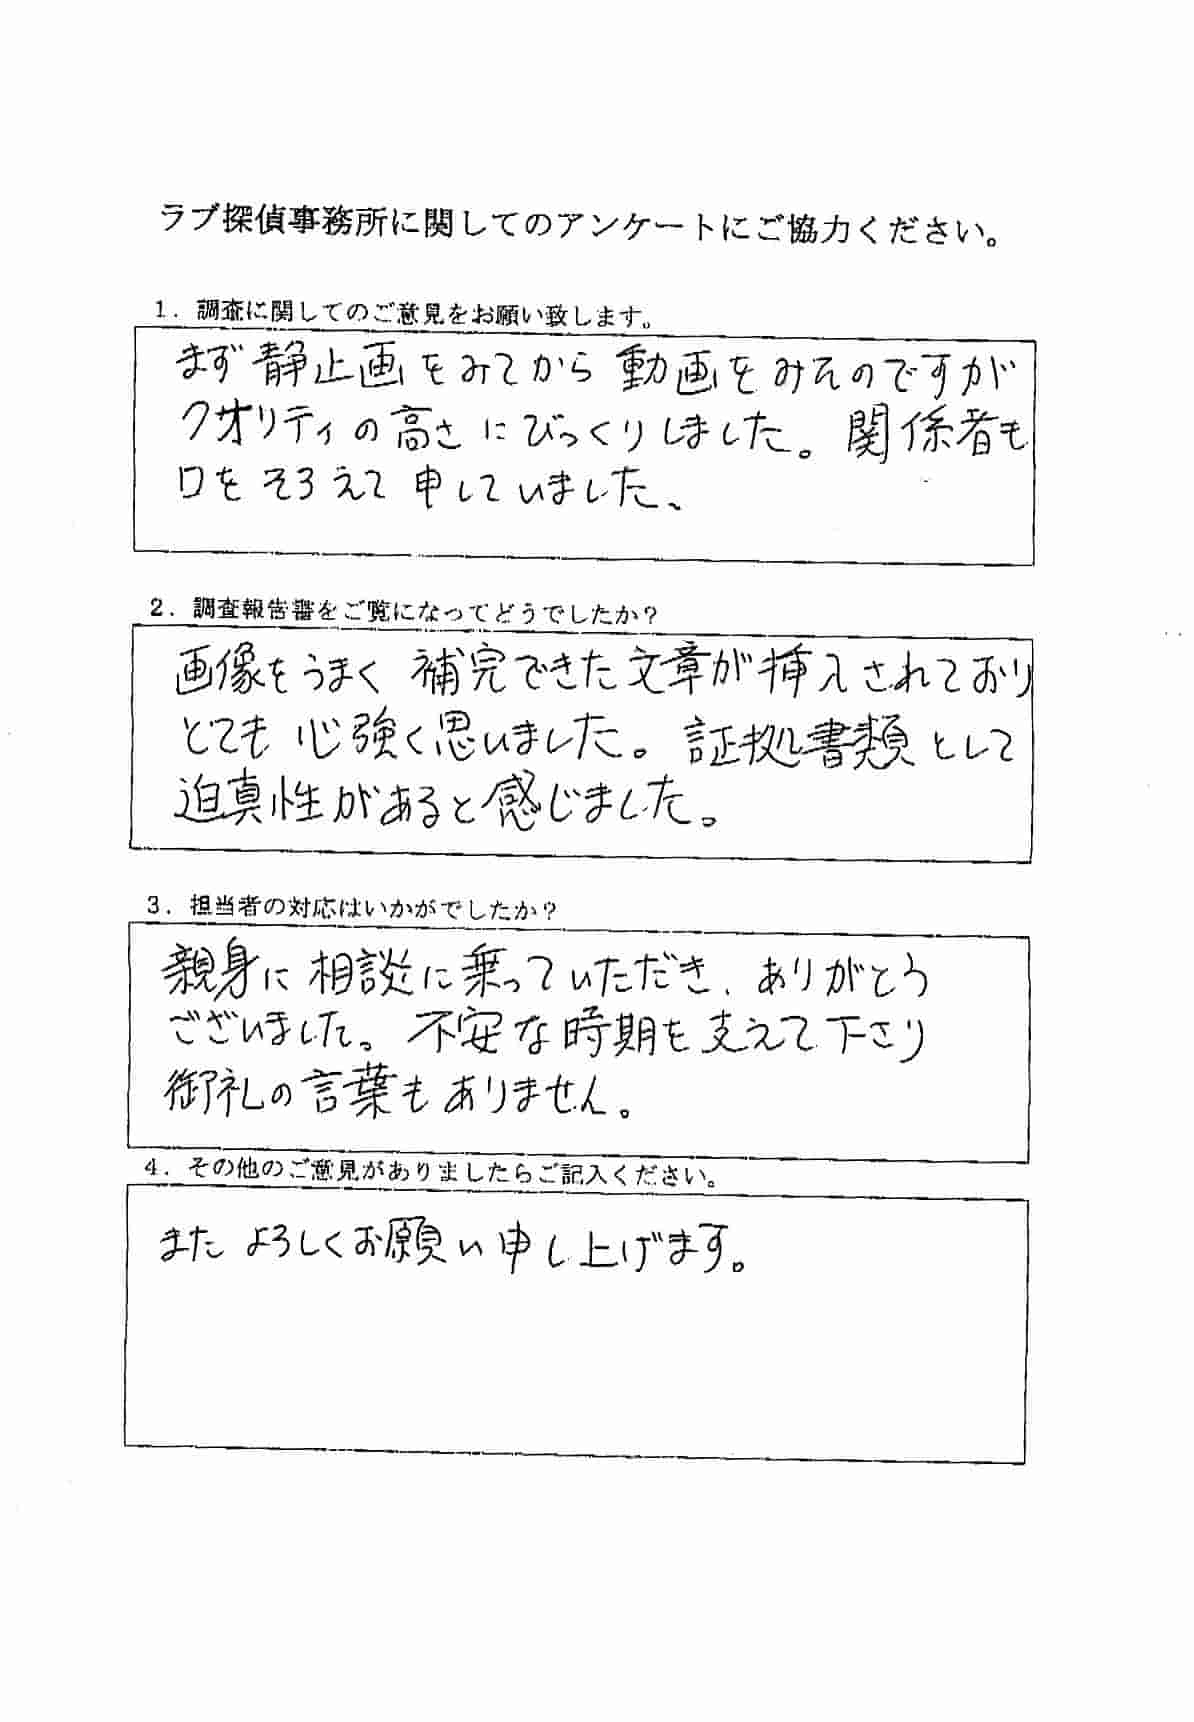 ラブ探偵事務所に関してのアンケートにご協力ください。
1．調査に関してのご意見をお願い致します。
まず静止画をみてから動画をみたのですが
クオリティの高さにびっくりしました。関係者も
口をそろえて申していました、
2．調査報告書をご覧になってどうでしたか？
画像をうまく補完できた文章が挿入されており
とても心強く思いました。証拠書類として
迫真性があると感じました。
3．担当者の対応はいかがでしたか？
親身に相談に乗っていただき、ありがとう
ございました。不安な時期を支えて下さり
御礼の言葉もありません。
4．その他のご意見がありましたらご記入ください。
またよろしくお願い申し上げます。